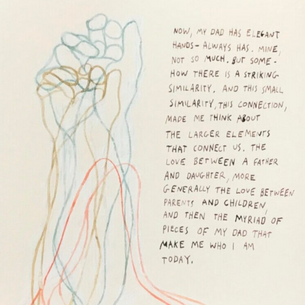 NOW, MY DAD HAS ELEGANT
HANDS – ALWAYS HAS. MINE,
NOT SO MUCH, BUT SOME-
HOW THERE IS A STRIKING
SIMILARITY. AND THIS SMALL
SIMILARITY, THIS CONNECTION,
MADE ME THINK ABOUT
THE LARGER ELEMENTS
THAT CONNECT US. THE
LOVE BETWEEN A FATHER
AND DAUGHTER, MORE
GENERALLY THE LOVE BETWEEN
PARENTS AND CHILDREN,
AND THEN THE MYRIAD OF
PIECES OF MY DAD THAT
MAKE ME WHO I AM
TODAY.